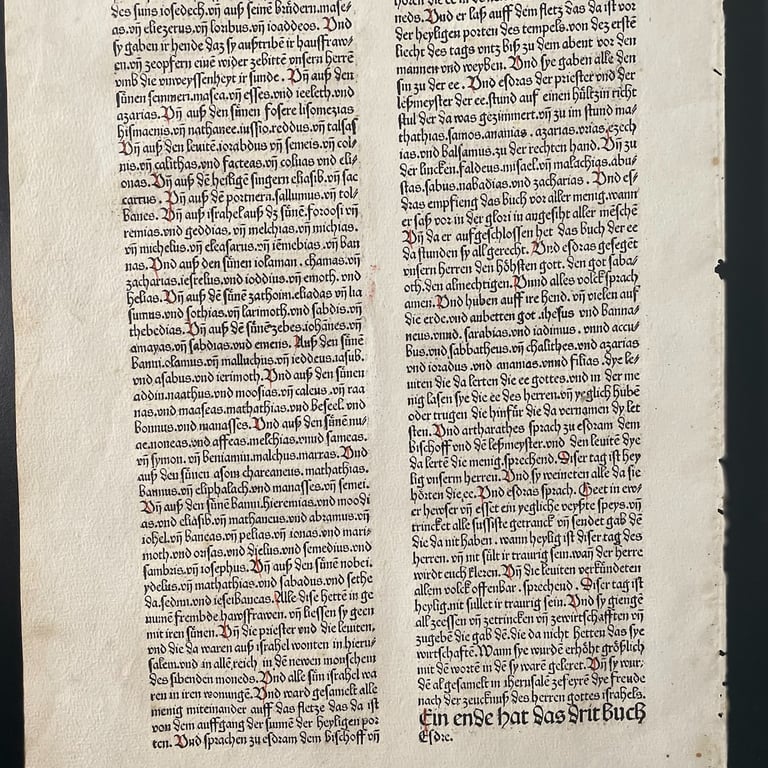 des suns iosedech.vñ auß seinē brůdern.mase-
as.vñ eliezerus.vñ loribus.vñ ioaddeos. Vnd
sy gaben ir hende daz sy außtribē ir haussfraw-
en.vñ zeopfern einē wider zebittē vnsern herrē
vmb die vnweyssenheyt ir sunde. Vñ auß den
sünen semmeri.masea.vñ esses.vnd ieeleth.vnd
azarias.Vñ auß den sünen fosere lisomezias
hismaenis.vñ nathanee.iussio.reddus.vñ talsas
Vñ auß den leuitē.iorabdus vñ semeis.vñ col-
nis.vñ calithas.vnd facteas.vñ coluas vnd eli-
onas.Vñ auß dē heiligē singern eliasib.vñ sac
carrus. Vñ auß dē portnern.sallumus.vñ tol-
banes. Vñ auß israhel.auß dz sünē.foroosi vñ
remias.vnd geddias. vñ melchias.vñ michias.
vñ michelus.vñ eleasarus.vñ iemebias.vñ ban
nas.Vnd auß den sünen iolaman. chamas.vñ
zacharias.iesrelus.vnd ioddius.vñ emoth. vnd
helias.Vñ auß dē sünē zathoim.eliadas vñ lia
sumus.vnd sothias.vñ larimoth.vnd sabdis.vñ
thebedias.Vñ auß dē sünē zebes.iohānes.vñ
amayas.vñ sabdias.vnd emens. Auß den sünē
Banni.olamus.vñ malluchus.vñ ieddeus.iasub.
vnd asabus.vnd ierimoth.Vnd auß den sünen
addin.naathus.vnd moosias.vñ caleus.vñ raa
nas.vnd maaseas.mathathias.vnd beseel.vnd
bonnus.vnd manasses.Vnd auß den sünē nu-
ae.noneas.vnd affeas.melchias.vnnd sameas.
vñ symon. vñ beniamin.malchus.marras.Vnd
auß den sünen asom chareaneus. mathathias.
Bannus.vñ eliphalach.vnd manasses.vñ semei.
Vñ auß den sünē Banni.hieremias.vnd moodi
as.vnd eliasib.vñ mathaneus.vnd abramus.vñ
iohel.vñ baneas.vñ pelias.vñ ionas.vnd mari-
moth.vnd orisas.vnd dielus.vnd semedius.vnd
sambris.vñ iosephus. Vñ auß den sünē nobei.
ydelus.vñ mathathias.vnd sabadus.vnd sethe
da.sedmi.vnd ieseibaneas.Alle dise hettē in ge
nunē frembde hawsfrawen. vñ liessen sy geen
mit iren sünen. Vñ die priester vnd die leuiten,
vnd die da waren auß israhel wonten in hieru-
salem.vnd in allē,reich in dē newen monschein
des sibenden moneds. Vnd alle sün israhel wa
ren in iren wonungē.Vnd ward gesamelt alle
menig miteinander auff das fletze das da ist
von dem auffgang der sunnē der heyligen por
ten. Vnd sprachen zu esdram dem bischoff vñ
hören die ee in
neds.Vnd er laß auff dem fletz das da ist vor
der heyligen porten des tempels.von dez erstē
liecht des tags vntz biß zu dem abent vor den
mannen vnd weyben. Vnd sye gaben alle den
sin zu der ee. Vnd esdras der priester vnd der
leßmeyster der ee.stund auf einen hültzin richt
stul der da was gezimmert.vñ zu im stund ma-
thathias.samos.ananias. azarias.vrias.ezech
ias.vnd balsamus.zu der rechten hand.Vñ zu
der lincken.faldeus.misael.vñ malachias.abu-
stas.sabus.nabadias.vnd zacharias. Vnd es-
dras empfieng das buch vor aller menig.wann
er saß vor in der glori in angesiht aller mēschē
Vñ da er aufgeschlossen het das buch der ee
da stunden sy all gerecht. Vnd esdras gesegēt
vnsern herren den höhsten gott. den got saba-
oth.den almechtigen.Vnnd alles volck sprach
amen.Vnd huben auff ire hend. vñ vielen auf
die erde.vnd anbetten got .ihesus vnd banna-
neus.vnnd. sarabias.vnd iadinus. vnnd accu-
bus.vnd.sabbatheus.vñ chalithes.vnd azarias
vnd ioradus.vnd ananias.vnnd filias.dye le-
uiten die da lerten die ee gottes.vnd in der me
nig lasen sye die ee des herren.vñ yeglich hübē
oder trugen die hinfür die da vernamen dy let
sten.Vnd artharathes sprach zu esdram dem
bischoff vnd dē leßmeyster.vnd den leuitē dye
da lertē die menig.sprechend.Diser tag ist hey
lig vnserm herren.Vnd sy weineten alle da sie
hörten die.ee.Vnd esdras sprach. Geet in ew-
er hewser vñ esset ein yegliche veyßte speys.vñ
trincket alle süssiste getranck vñ sendet gab dē
die da nit haben. wann heylig ist diser tag des
herren. vñ nit sült ir traurig sein.wañ der herre
wirdt euch kleren. Vñ die leuiten verkündeten
allem volck offenbar. sprechend. Diser tag ist
heylig.nit süllet ir traurig sein.Vnd sy giengē
all zeessen vñ zetrincken vñ zewirtschafften vñ
zugebē die gab dē.die da nicht hetten das sye
wirtschaftē.Wann sye wurdē erhöht größlich
mit dē wortē in dē sy warē geleret.Vñ sy wur-
dē al gesamelt in iherusalē zefeyrē dye freude
nach der zeucknuß des herren gottes israhels.
Ein ende hat das drit buch
Esdre.